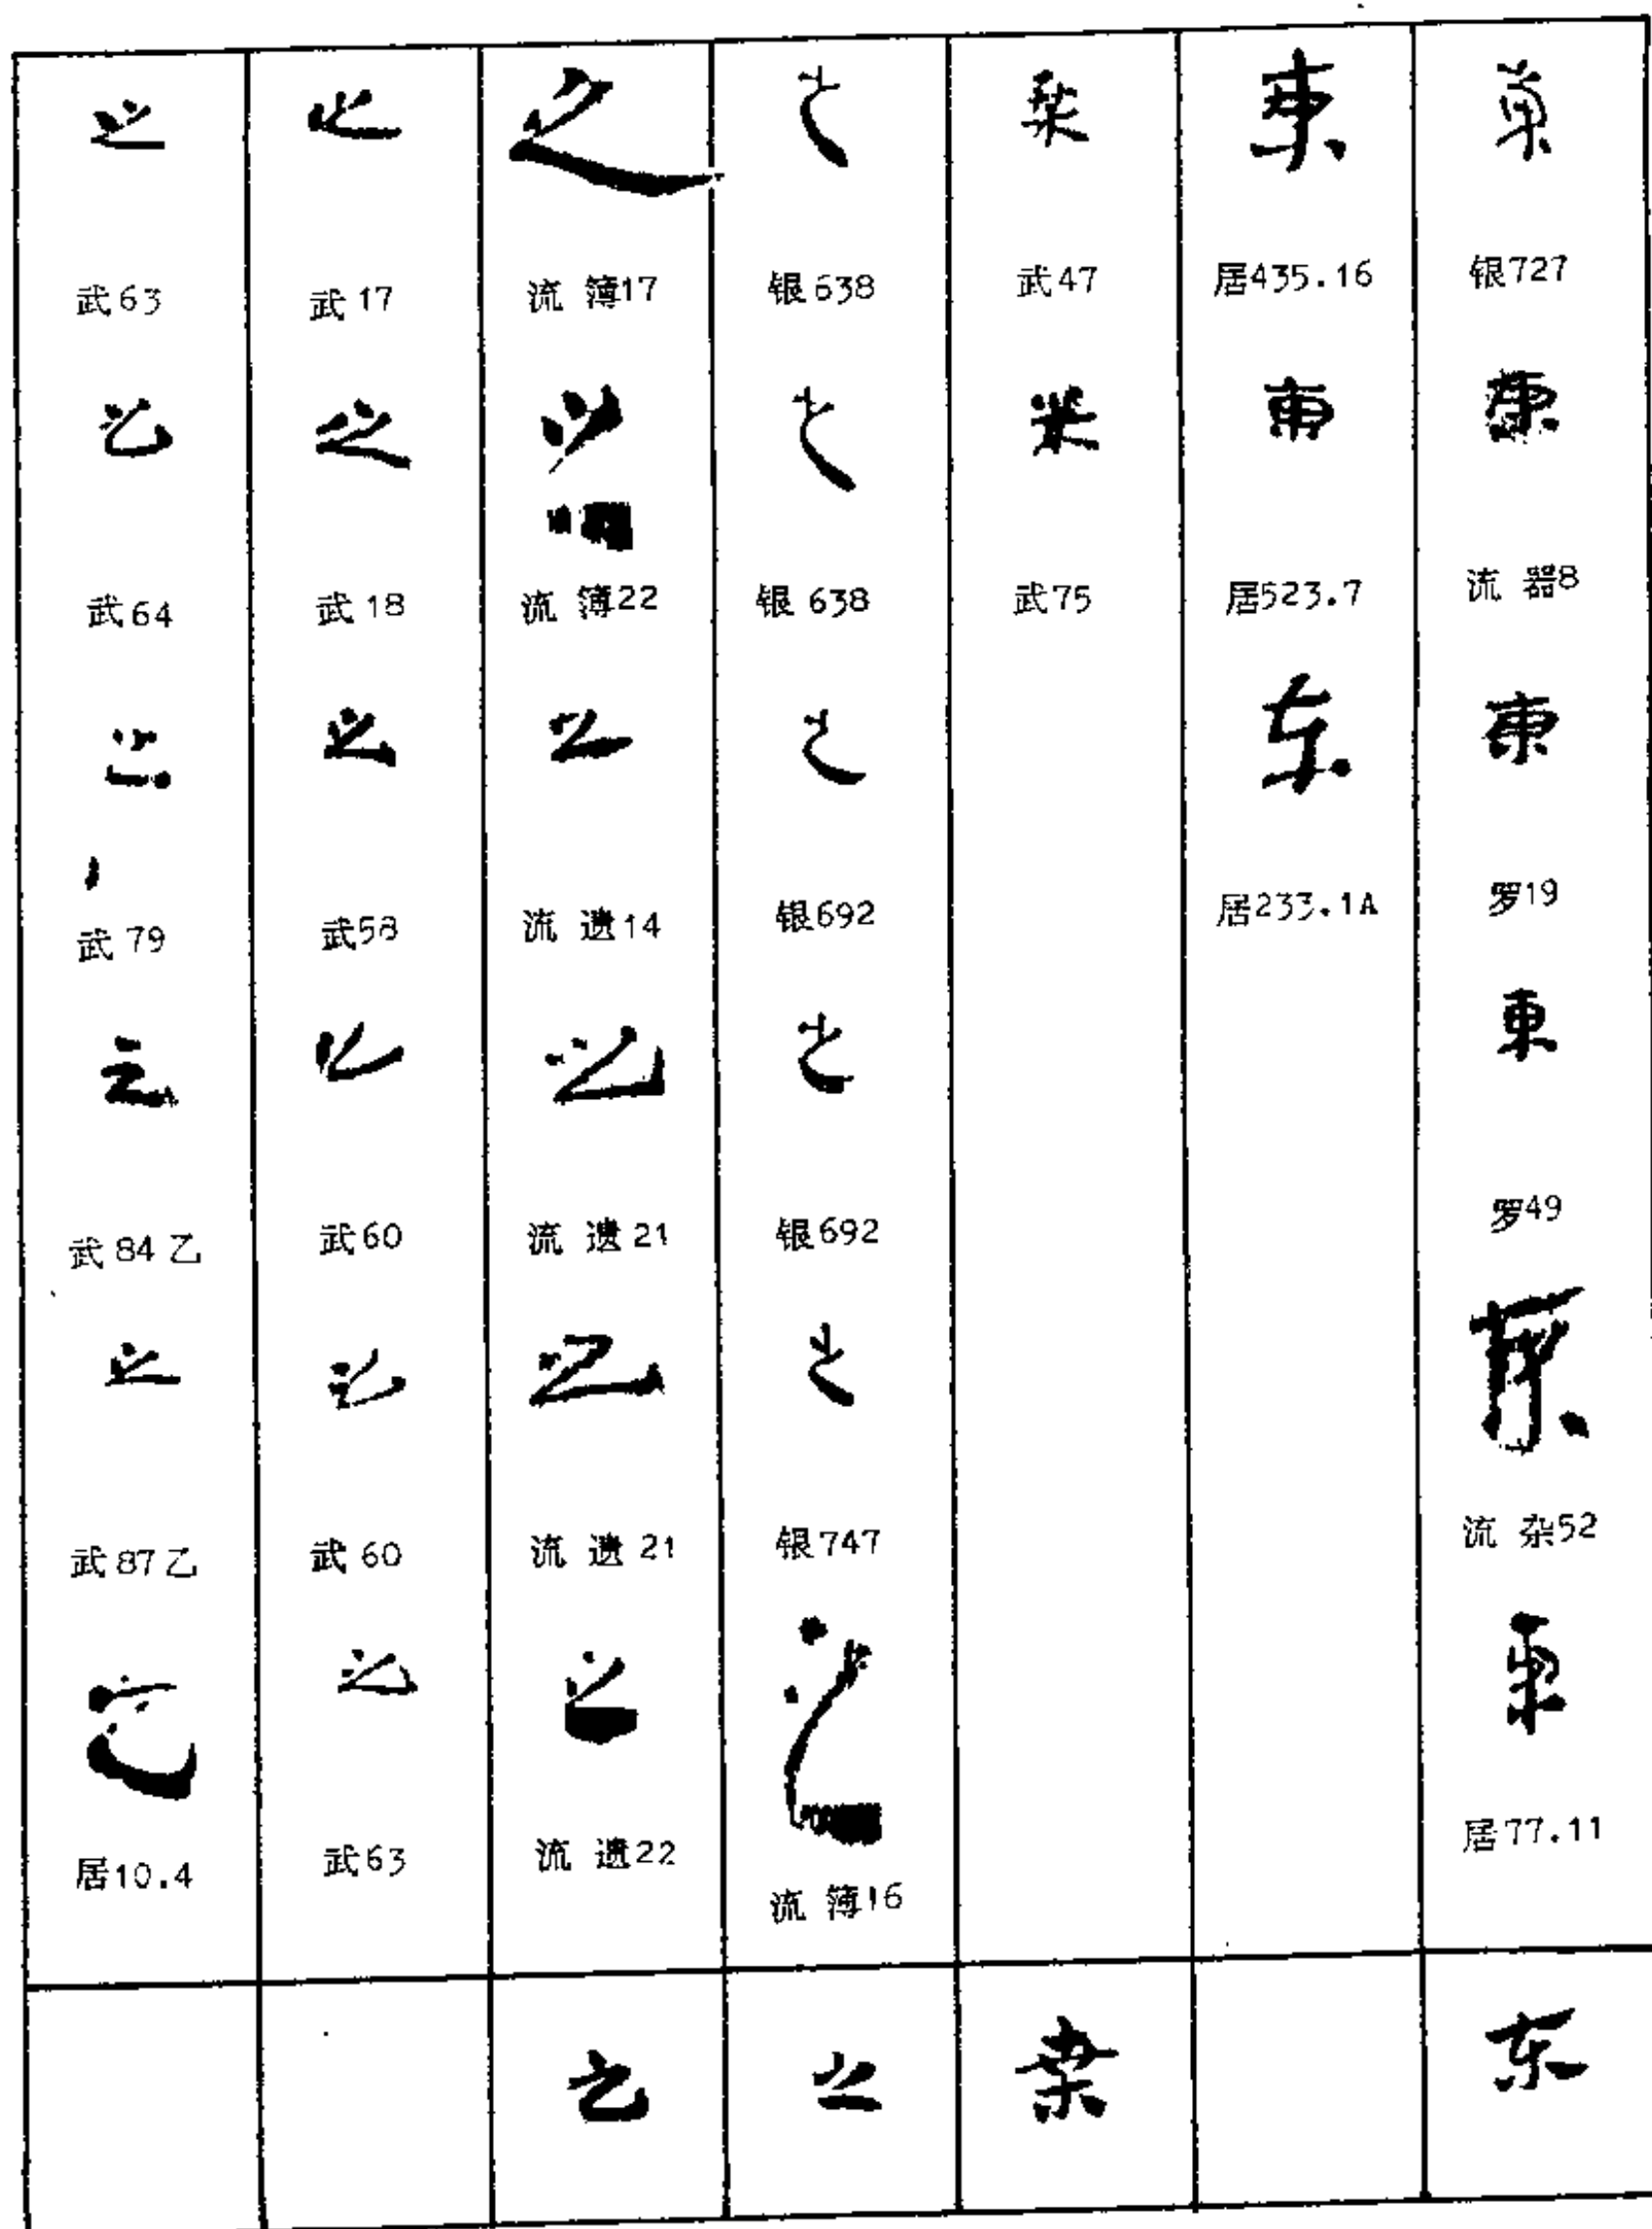 東
银727
東
流 器8
東
罗19
東
罗49
東
流 杂52
東
居77.11
东
東
居435.16
東
居523.7
东
居233.1A
桑
武47
桑
武75
桑
之
银638
之
银638
之
银692
之
银692
之
银747
之
流 簿16
之
之
流 簿17
之
流 簿22
之
流 遗14
之
流 遗21
之
流 遗21
之
流 遗22
之
之
武17
之
武18
之
武58
之
武60
之
武60
之
武63
之
武63
之
武64
之
武79
之
武84乙
之
武87乙
之
居10.4